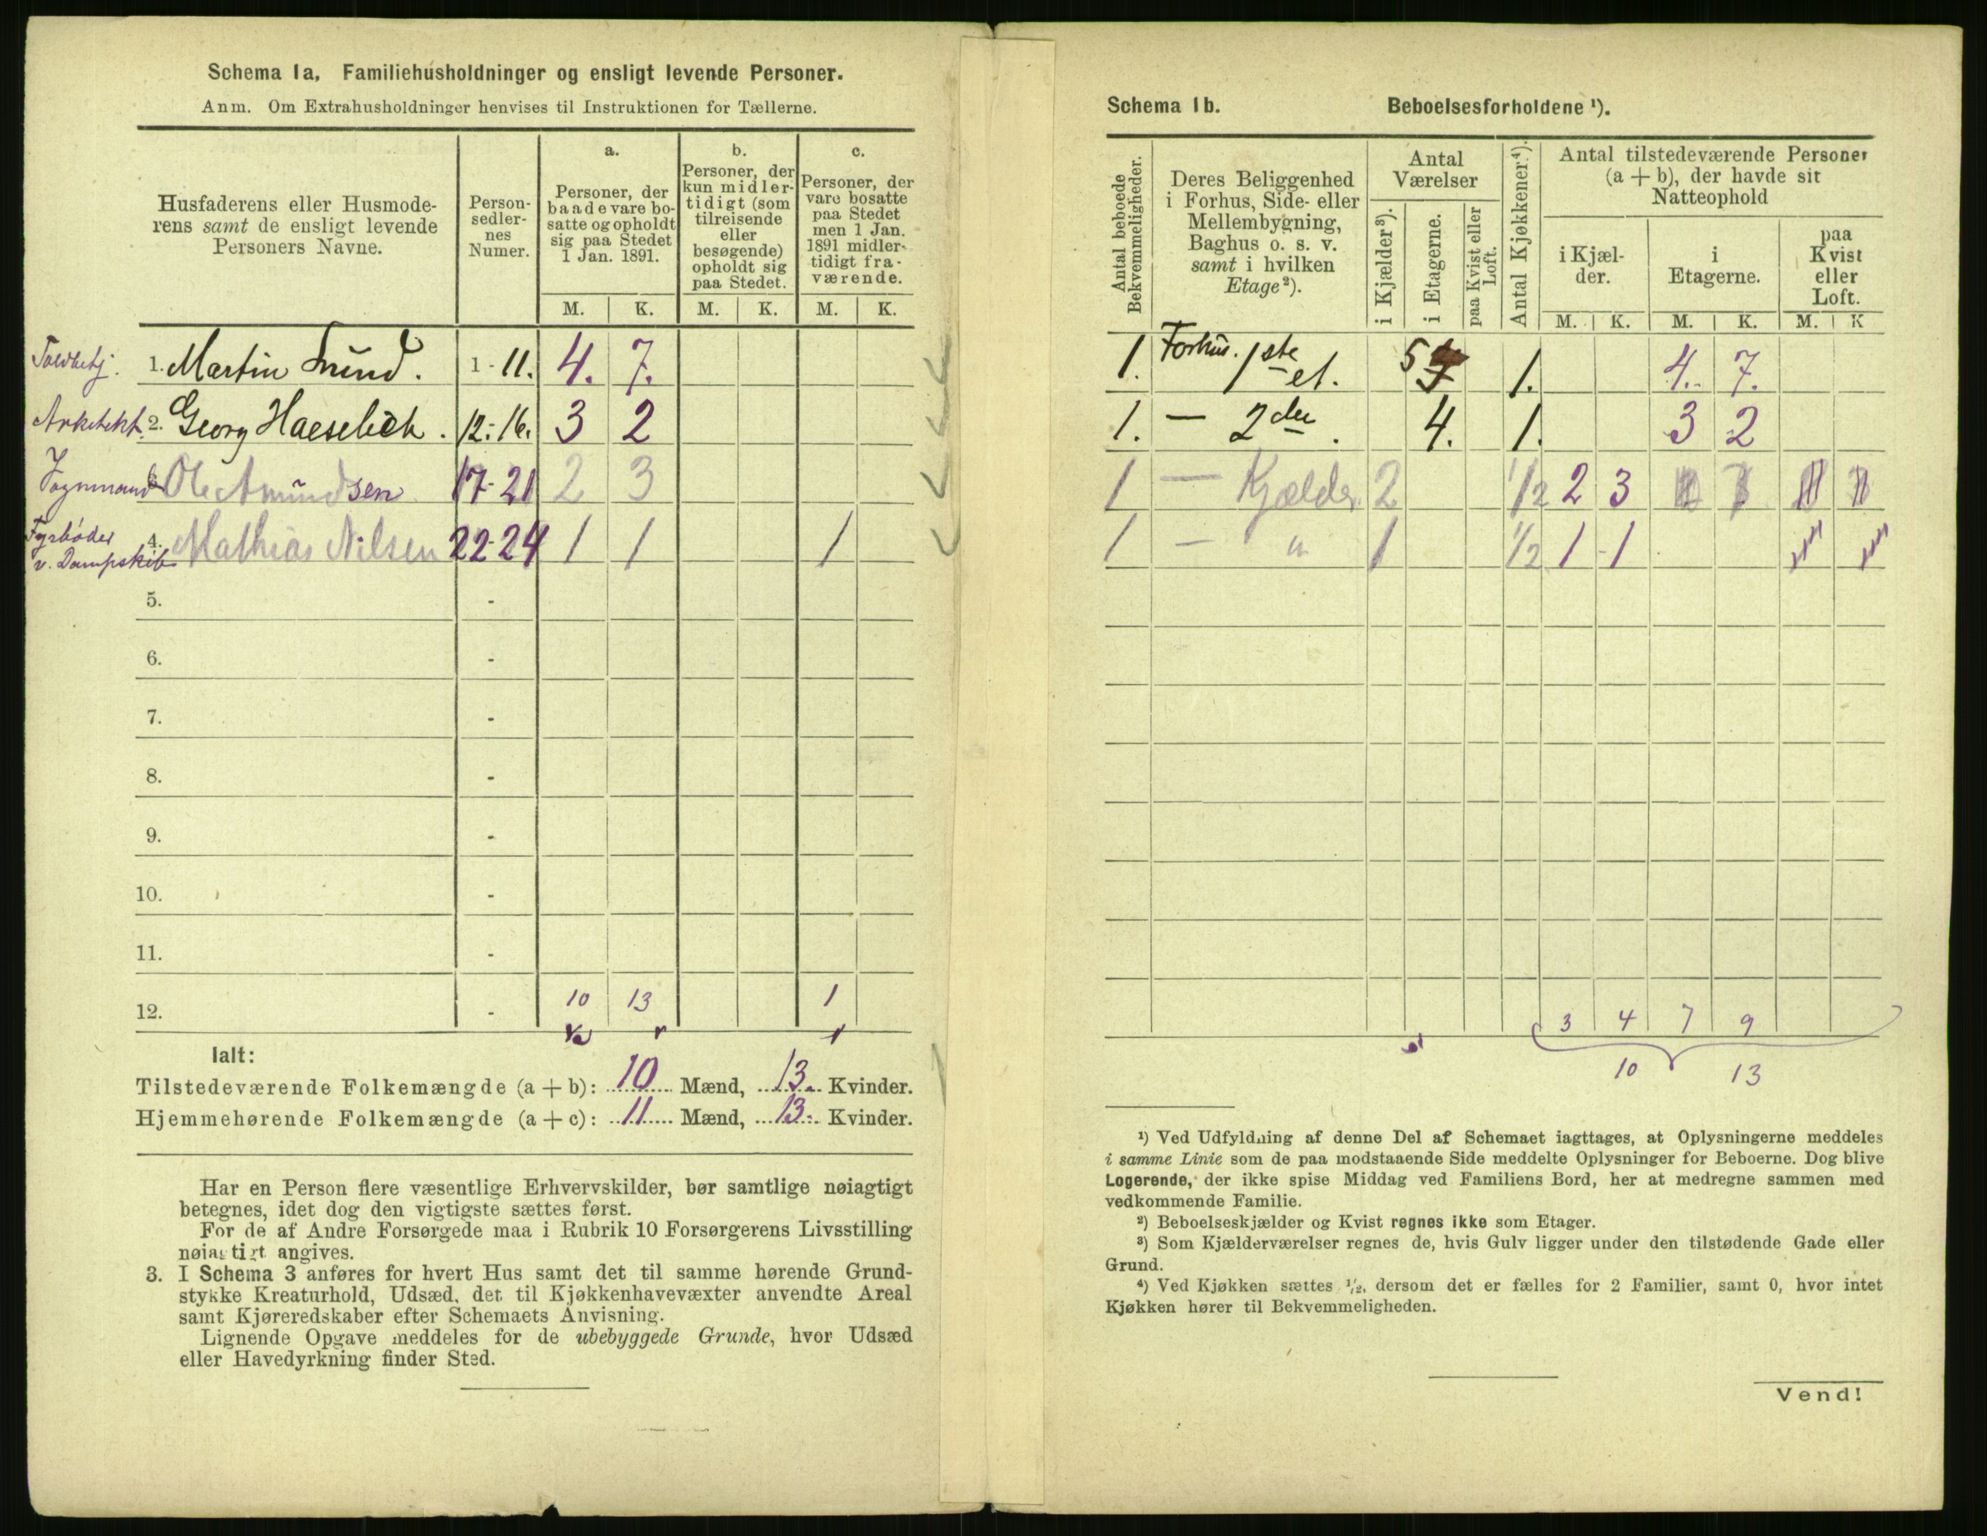 Schema 1a, Familiehusholdninger og ensligt levende Personer.
Anm. Om Extrahusholdninger henvises til Instruktionen for Tællerne.
Husfaderens eller Husmode-
rens samt de ensligt levende
Personers Navne.
Person-
sedler-
nes
Numer.
a.
Personer, der
baade vare bo-
satte og opholdt
sig paa Stedet
1 Jan. 1891.
b.
Personer, der
kun midler-
tidigt (som
tilreisende
eller
besøgende)
opholdt sig
paa Stedet.
c.
Personer, der
vare bosatte
paa Stedet
men 1 Jan.
1891 midler-
tidigt fra-
værende.
M. K. M. K. M. K.
Toldbetj. 1. Martin Lund. 1 - 11. 4. 7.
Arkitekt. 2. Georg Haeselich. 12.-16. 3 2
Vognmand Ole Amundsen 17-21 2 3
Fyrbøder
v. Dampskib 4. Mathias Nilsen 22-24 1 1 1
5. -
6. -
7. -
8. -
9. -
10. -
11. -
12. - 10 13 1
Ialt:
Tilstedeværende Folkemængde (a + b): 10 Mænd, 13. Kvinder.
Hjemmehørende Folkemængde (a + c): 11 Mænd, 13. Kvinder.
Har en Person flere væsentlige Erhvervskilder, bør samtlige nøiagtigt
betegnes, idet dog den vigtigste sættes først.
For de af Andre Forsørgede maa i Rubrik 10 Forsørgerens Livsstilling
nøiagtigt angives.
3. I Schema 3 anføres for hvert Hus samt det til samme hørende Grund-
stykke Kreaturhold, Udsæd, det til Kjøkkenhavevæxter anvendte Areal
samt Kjøreredskaber efter Schemaets Anvisning.
Lignende Opgave meddeles for de ubebyggede Grunde, hvor Udsæd
eller Havedyrkning finder Sted.
Schema 1b. Beboelsesforholdene ¹).
Antal beboede
Bekvemmeligheder.
Deres Beliggenhed
i Forhus, Side- eller
Mellembygning,
Baghus o. s. v.
samt i hvilken
Etage²).
Antal
Værelser
i Kjælder³).
i Etagerne.
paa Kvist eller
Loft.
Antal Kjøkkener⁴).
Antal tilstedeværende Personer
(a + b), der havde sit
Natteophold
i Kjæl-
der.
i
Etagerne.
paa
Kvist
eller
Loft.
M. K. M. K. M. K
1. Forhus. 1ste et. 5 1. 4. 7.
1. — 2den. 4. 1. 3 2
1 — Kjælder 2 1/2 2 3
1 — " 1 1/2 1 1
3 4 7 9
10 13
¹) Ved Udfyldning af denne Del af Schemaet iagttages, at Oplysningerne meddeles
i samme Linie som de paa modstaaende Side meddelte Oplysninger for Beboerne. Dog blive
Logerende, der ikke spise Middag ved Familiens Bord, her at medregne sammen med
vedkommende Familie.
²) Beboelseskjælder og Kvist regnes ikke som Etager.
³) Som Kjælderværelser regnes de, hvis Gulv ligger under den tilstødende Gade eller
Grund.
⁴) Ved Kjøkken sættes ½, dersom det er fælles for 2 Familier, samt 0, hvor intet
Kjøkken hører til Bekvemmeligheden.
Vend!